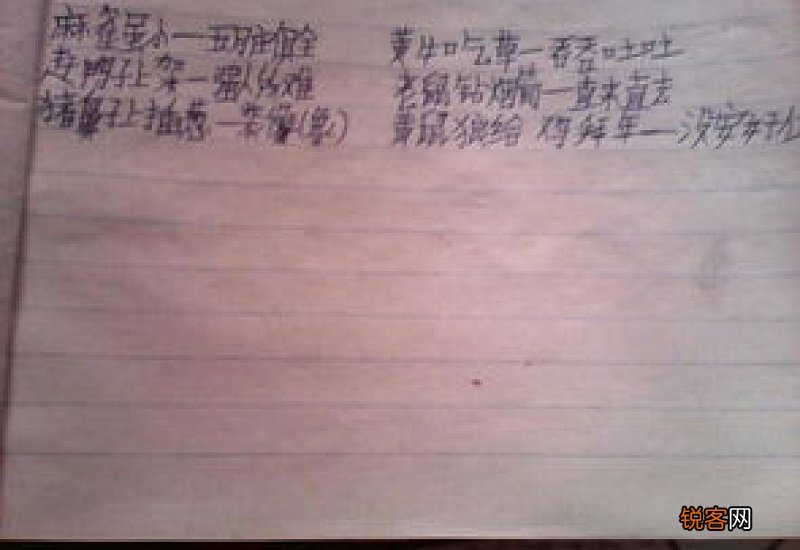 麻雀虽小—五脏俱全 黄牛吃草—吞吞吐吐
赶鸭子上架—强人所难 老鼠钻烟筒—直来直去
猪鼻子上插葱—装像(象) 黄鼠狼给鸡拜年—没安好心
锐客网